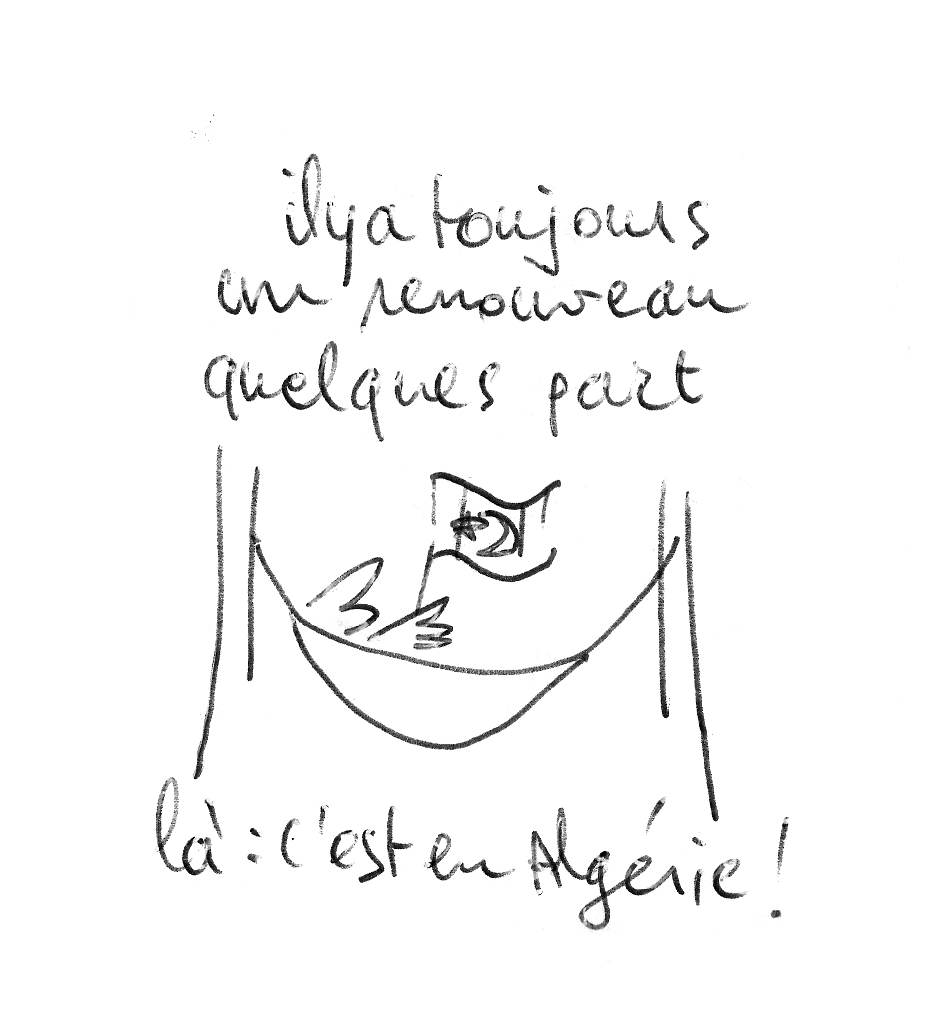 il y a toujours
un renouveau
quelques part
là : c'est en Algérie !